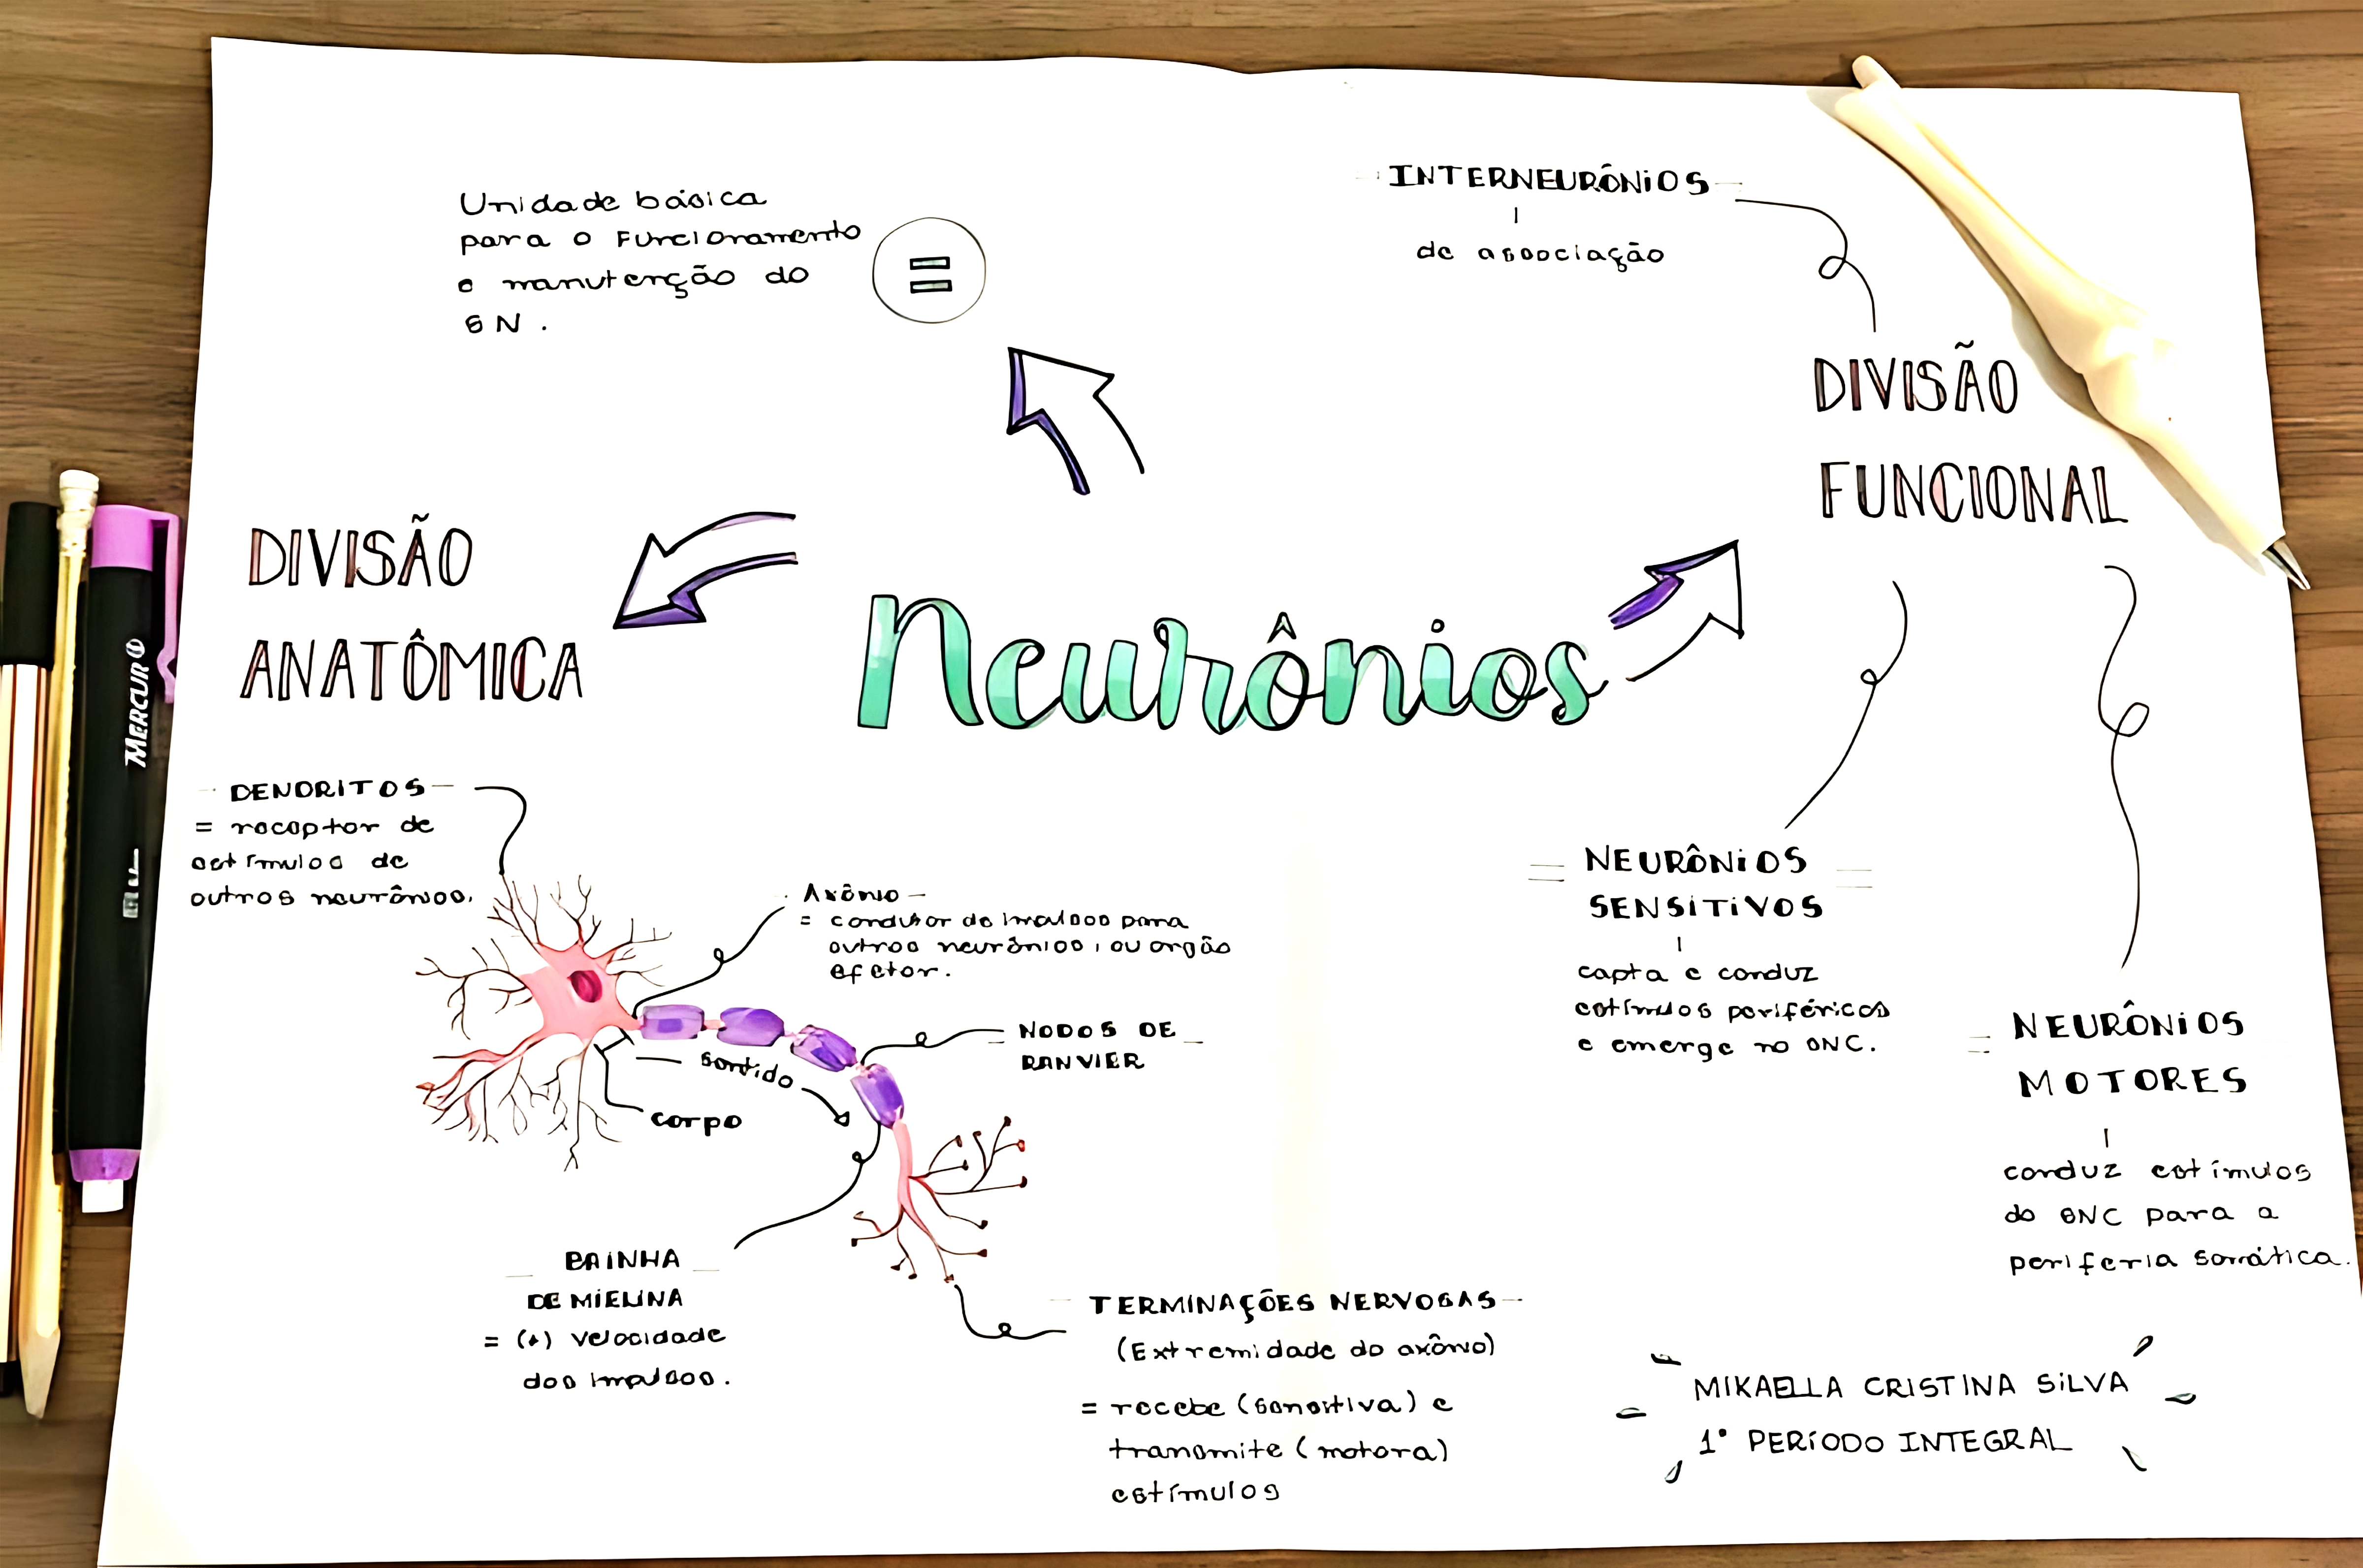 Unidade básica
para o funcionamento
e manutenção do
SN.
=
INTERNEURÔNIOS
de associação
DIVISÃO
FUNCIONAL
DIVISÃO
ANATÔMICA
Neurônios
MERCUR
DENDRITOS
= receptor de
estímulos de
outros neurônios.
Axônio
= condutor de impulsos para
outros neurônios, ou orgão
efetor.
NODOS DE
RANVIER
sentido
corpo
BAINHA
DE MIELINA
= (+) velocidade
dos impulsos.
TERMINAÇÕES NERVOSAS
(Extremidade do axônio)
= recebe (sensitiva) e
transmite (motora)
estímulos
NEURÔNIOS
SENSITIVOS
capta e conduz
estímulos periféricos
e emerge no SNC.
NEURÔNIOS
MOTORES
conduz estímulos
do SNC para a
periferia somática.
MIKAELLA CRISTINA SILVA
1° PERÍODO INTEGRAL